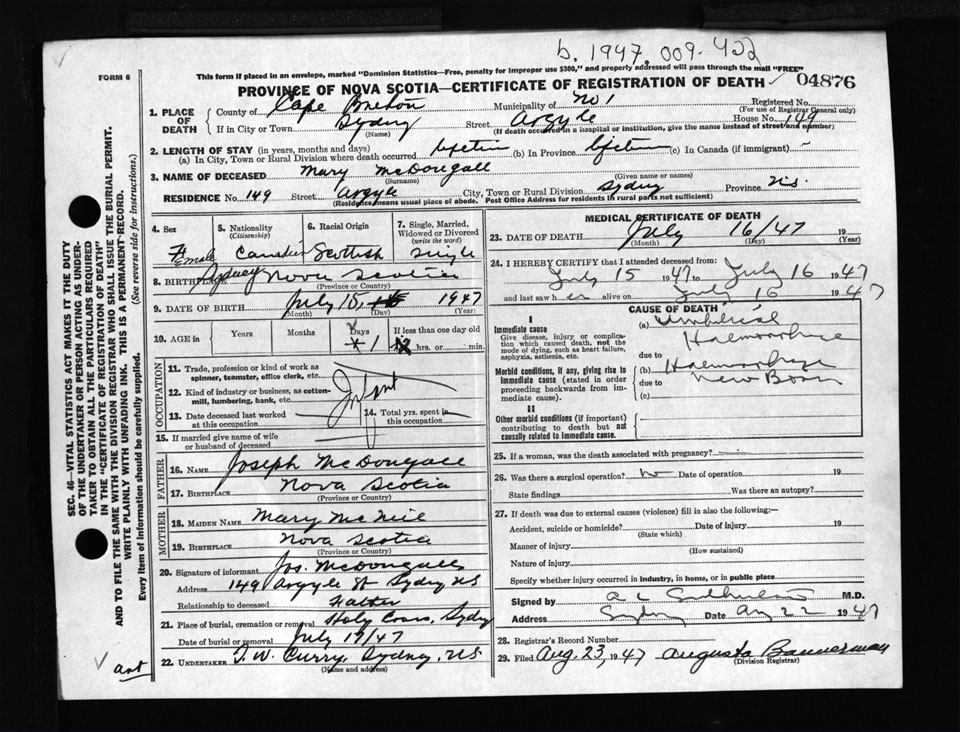 b. 1947. 009-422
FORM 6
This form if placed in an envelope, marked "Dominion Statistics—Free, penalty for improper use $300," and properly addressed will pass through the mail "FREE"
PROVINCE OF NOVA SCOTIA—CERTIFICATE OF REGISTRATION OF DEATH ✓ 04876
1. PLACE OF DEATH County of Cape Breton Municipality of No 1 Registered No. (For use of Registrar General only)
If in City or Town Sydney (Name) Street Argyle House No. 149
(If death occurred in a hospital or institution, give the name instead of street and number)
2. LENGTH OF STAY (in years, months and days)
(a) In City, Town or Rural Division where death occurred lifetime (b) In Province lifetime (c) In Canada (if immigrant) –
3. NAME OF DECEASED Mary McDougall
(Surname) (Given name or names)
RESIDENCE No. 149 Street Argyle City, Town or Rural Division Sydney Province N.S.
(Residence means usual place of abode. Post Office Address for residents in rural parts not sufficient)
4. Sex 5. Nationality (Citizenship) 6. Racial Origin 7. Single, Married, Widowed or Divorced (write the word)
Female Canadian Scottish single
8. BIRTHPLACE Sydney Nova Scotia
(Province or Country)
9. DATE OF BIRTH July 15, 1947
(Month) (Day) (Year)
10. AGE in Years Months Days If less than one day old
1 hrs. or min.
OCCUPATION
11. Trade, profession or kind of work as spinner, teamster, office clerk, etc.
12. Kind of industry or business, as cotton-mill, lumbering, bank, etc. Infant
13. Date deceased last worked at this occupation 14. Total yrs. spent in this occupation
15. If married give name of wife or husband of deceased
FATHER
16. NAME Joseph McDougall
17. BIRTHPLACE Nova Scotia
(Province or Country)
MOTHER
18. MAIDEN NAME Mary McNeil
19. BIRTHPLACE Nova Scotia
(Province or Country)
20. Signature of informant Jos. McDougall
Address 149 Argyle St Sydney NS
Relationship to deceased Father
21. Place of burial, cremation or removal Holy Cross, Sydney
Date of burial or removal July 17/47
22. UNDERTAKER T.W. Curry, Sydney, N.S.
(Name and address)
MEDICAL CERTIFICATE OF DEATH
23. DATE OF DEATH July 16/47 19
(Month) (Day) (Year)
24. I HEREBY CERTIFY that I attended deceased from:
July 15 1947 to July 16 1947
and last saw her alive on July 16 1947
CAUSE OF DEATH
I
Immediate cause (a) Umbilical
Give disease, injury or complication which caused death, not the mode of dying, such as heart failure, asphyxia, asthenia, etc. Haemorrhage
due to
Morbid conditions, if any, giving rise to immediate cause (stated in order proceeding backwards from immediate cause). (b) Haemorrhage
due to New Born
(c)
II
Other morbid conditions (if important) contributing to death but not causally related to immediate cause.
25. If a woman, was the death associated with pregnancy? –
26. Was there a surgical operation? No Date of operation 19
State findings Was there an autopsy?
27. If death was due to external causes (violence) fill in also the following:—
Accident, suicide or homicide? Date of injury 19
(State which)
Manner of injury
(How sustained)
Nature of injury
Specify whether injury occurred in industry, in home, or in public place
Signed by M.D.
Address Sydney Date Aug 22 1947
28. Registrar's Record Number
29. Filed Aug. 23, 1947 Augusta Bannerman
(Division Registrar)
SEC. 46—VITAL STATISTICS ACT MAKES IT THE DUTY
OF THE UNDERTAKER OR PERSON ACTING AS UNDERTAKER TO OBTAIN ALL THE PARTICULARS REQUIRED
IN THE "CERTIFICATE OF REGISTRATION OF DEATH"
AND TO FILE THE SAME WITH THE DIVISION REGISTRAR WHO SHALL ISSUE THE BURIAL PERMIT.
WRITE PLAINLY WITH UNFADING INK. THIS IS A PERMANENT RECORD.
Every item of information should be carefully supplied. (See reverse side for instructions.)
✓ ant